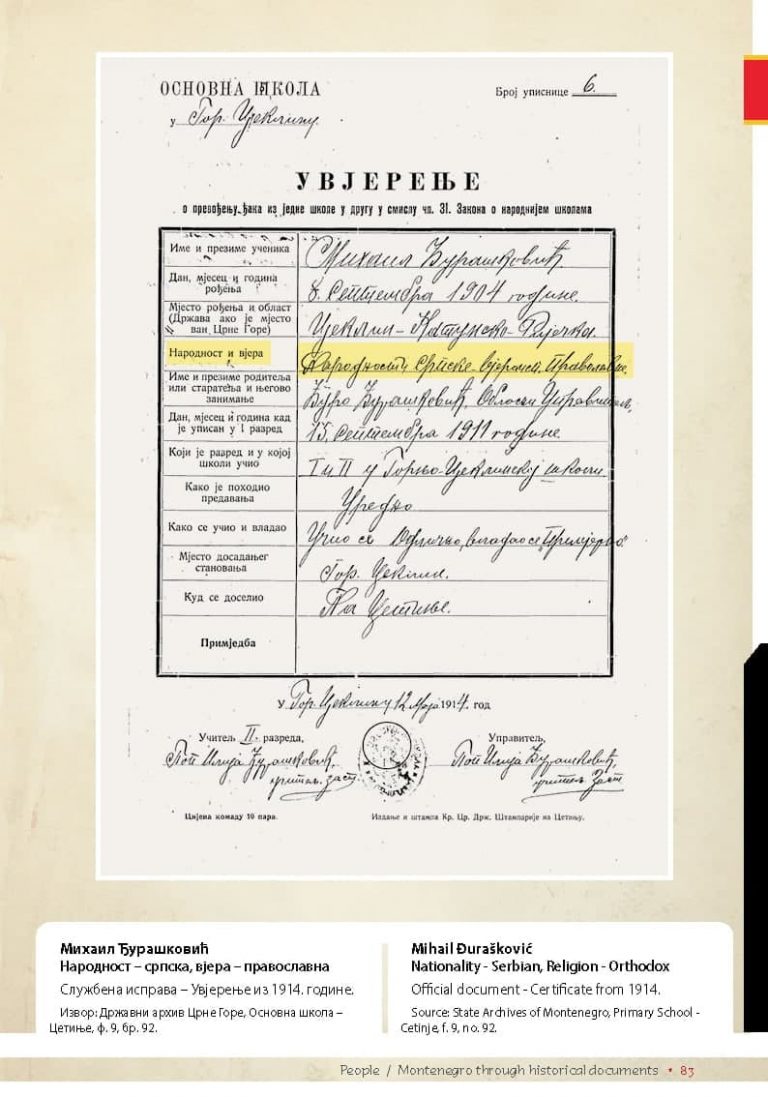 ОСНОВНА ШКОЛА
Број уписнице 6.
у Гор. Цеклину.
УВЈЕРЕЊЕ
о превођењу ђака из једне школе у другу у смислу чл. 31. Закона о народнијем школама
Име и презиме ученика
Михаил Ђурашковић.
Дан, мјесец и година
рођења
8. Септембра 1904 године.
Мјесто рођења и област
(Држава ако је мјесто
ван Црне Горе)
Цеклин - Катунско - Ријечка.
Народност и вјера
Народности Српске вјере Православне.
Име и презиме родитеља
или старатеља и његово
занимање
Ђуро Ђурашковић. Обласни Управитељ.
Дан, мјесец и година кад
је уписан у I разред
15. Септембра 1911 године.
Који је разред и у којој
школи учио
I и II у Горњо-Цеклинској школи.
Како је походио
предавања
Уредно
Како се учио и владао
Учио се Одлично, владао се Примјерно.
Мјесто досадањег
становања
Гор. Цеклин.
Куд се доселио
На Цетиње.
Примједба
У Гор. Цеклину 12 Маја 1914. год
Учитељ II. разреда,
Управитељ,
Поп Илија Ђурашковић,
Поп Илија Ђурашковић,
Цијена комаду 10 пара.
Издање и штампа Кр. Цр. Држ. Штампарије на Цетињу.
Михаил Ђурашковић
Народност – српска, вјера – православна
Службена исправа – Увјерење из 1914. године.
Извор: Државни архив Црне Горе, Основна школа –
Цетиње, ф. 9, бр. 92.
Mihail Đurašković
Nationality - Serbian, Religion - Orthodox
Official document - Certificate from 1914.
Source: State Archives of Montenegro, Primary School -
Cetinje, f. 9, no. 92.
People / Montenegro through historical documents • 83